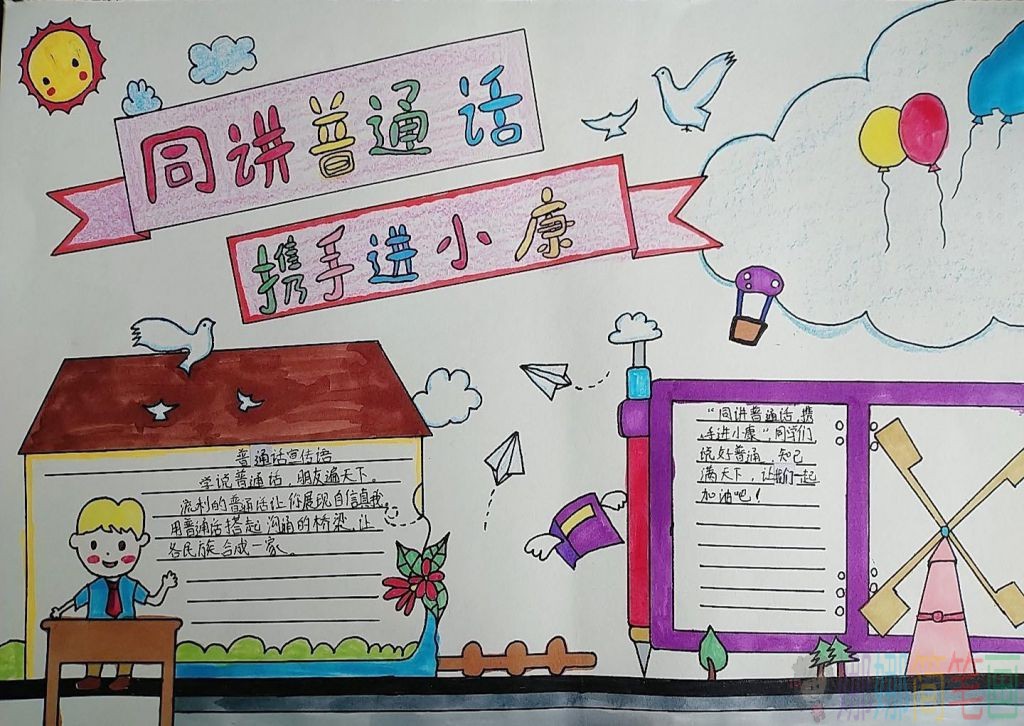 同讲普通话
携手进小康
普通话宣传语
学说普通话，朋友遍天下。
流利的普通话让你展现自信真我
用普通话搭起沟通的桥梁，让
各民族合成一家。
“同讲普通话，携
手进小康”，同学们
说好普通，知己
满天下，让我们一起
加油吧！
娜娜简笔画